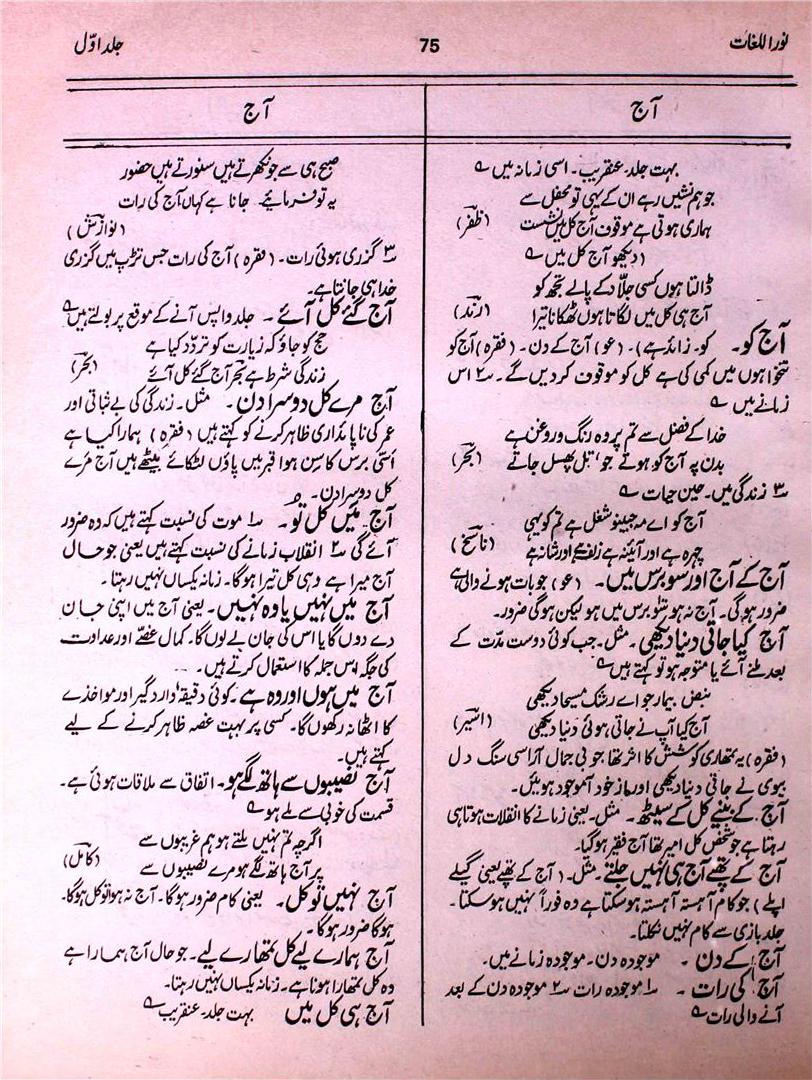 نوراللغات
75
جلد اوّل
آج
بہت جلد۔ عنقریب۔ اسی زمانہ میں ؎
جو ہم نشیں رہے ان کے یہی تو محفل سے
ہماری ہوتی ہے موقوف آج کل میں نشست (ظفر)
(دیکھو آج کل میں ؎
ڈالتا ہوں کسی جلّاد کے پالے تجھ کو
آج ہی کل میں لگاتا ہوں ٹھکانا تیرا (رند)
آج کو۔ کو۔ زائد ہے)۔ (عو) آج کے دن۔ (فقرہ) آج کو
تنخواہوں میں کمی کی ہے کل کو موقوف کر دیں گے۔ ۲؎ اس
زمانے میں ؎
خدا کے فضل سے تم پر وہ رنگ و روغن ہے
بدن پہ آج کو ہوتے جو تل پھسل جاتے (بحر)
۳؎ زندگی میں۔ حین حیات ؎
آج کو اے مہ جبینو شغل ہے تم کو یہی
چہرہ ہے اور آئینہ ہے زلف ہے اور شانہ ہے (ناسخ)
آج کے آج اور سو برس میں۔ (عو) جو بات ہونے والی ہے
ضرور ہوگی۔ آج نہ ہو سو برس میں ہو لیکن ہوگی ضرور۔
آج کیا جاتی دنیا دیکھی۔ مثل۔ جب کوئی دوست مدّت کے
بعد ملنے آئے یا متوجہ ہو تو کہتے ہیں ؎
نبض بیمار جو اے رشک مسیحا دیکھی
آج کیا آپ نے جاتی ہوئی دنیا دیکھی (اسیر)
(فقرہ) یہ تمھاری کوشش کا اثر تھا جو بی جمال آرا سی سنگ دل
بیوی نے جاتی دنیا دیکھی اور از خود آموجود ہوئیں۔
آج کے بنیے کل کے سیٹھ۔ مثل۔ یعنی زمانے کا انقلاب ہوتا ہی
رہتا ہے جو شخص کل امیر تھا آج فقیر ہوگیا۔
آج کے تھپے آج ہی نہیں جلتے۔ مثل۔ (آج کے تھپے یعنی گیلے
اپلے) جو کام آہستہ آہستہ ہو سکتا ہے وہ فوراً نہیں ہو سکتا۔
جلد بازی سے کام نہیں نکلتا۔
آج کے دن۔ موجودہ دن۔ موجودہ زمانے میں۔
آج کی رات۔ ۱؎ موجودہ رات ۲؎ موجودہ دن کے بعد
آنے والی رات ؎
آج
صبح ہی سے جو نکھرتے ہیں سنورتے ہیں حضور
یہ تو فرمائیے۔ جانا ہے کہاں آج کی رات
(نوازش)
۳؎ گزری ہوئی رات۔ (فقرہ) آج کی رات جس تڑپ میں گزری
خدا ہی جانتا ہے۔
آج گئے کل آئے۔ جلد واپس آنے کے موقع پر بولتے ہیں ؎
حج کو جاؤ کہ زیارت کو تردّد کیا ہے
زندگی شرط ہے بحر آج گئے کل آئے (بحر)
آج مرے کل دوسرا دن۔ مثل۔ زندگی کی بے ثباتی اور
عمر کی ناپائداری ظاہر کرنے کو کہتے ہیں (فقرہ) ہمارا کیا ہے
اسّی برس کا سِن ہوا قبر میں پاؤں لٹکائے بیٹھے ہیں آج مرے
کل دوسرا دن۔
آج میں کل تو۔ ۱؎ موت کی نسبت کہتے ہیں کہ وہ ضرور
آئے گی ۲؎ انقلاب زمانے کی نسبت کہتے ہیں یعنی جو حال
آج میرا ہے وہی کل تیرا ہوگا۔ زمانہ یکساں نہیں رہتا۔
آج میں نہیں یا وہ نہیں۔ یعنی آج میں اپنی جان
دے دوں گا یا اس کی جان لے لوں گا۔ کمال غصّے اور عداوت
کی جگہ اس جملہ کا استعمال کرتے ہیں۔
آج میں ہوں اور وہ ہے۔ کوئی دقیقہ دار و گیر اور مواخذے
کا اٹھا نہ رکھوں گا۔ کسی پر بہت غصہ ظاہر کرنے کے لیے
کہتے ہیں۔
آج نصیبوں سے ہاتھ لگے ہو۔ اتفاق سے ملاقات ہوئی ہے۔
قسمت کی خوبی سے ملے ہو ؎
اگرچہ تم نہیں ملتے ہو ہم غریبوں سے
پر آج ہاتھ لگے ہو مرے نصیبوں سے (کامل)
آج نہیں تو کل۔ یعنی کام ضرور ہوگا۔ آج نہ ہوا تو کل ہوگا۔
ہوگا ضرور ہوگا۔
آج ہمارے لیے کل تمھارے لیے۔ جو حال آج ہمارا ہے
وہ کل تمھارا ہونا ہے۔ زمانہ یکساں نہیں رہتا۔
آج ہی کل میں بہت جلد۔ عنقریب ؎